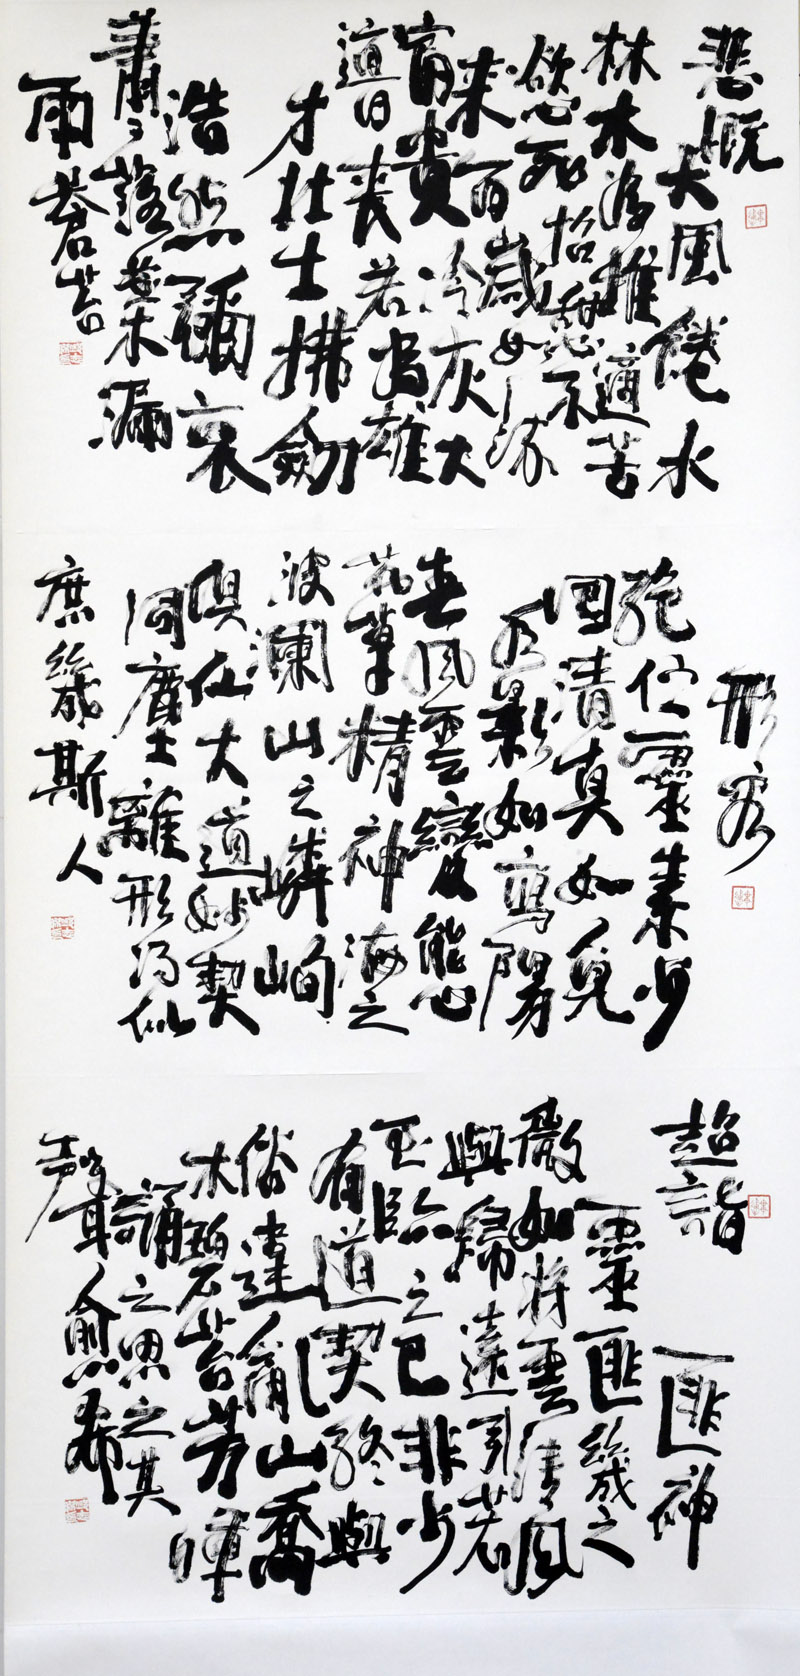 悲慨
大風倦水
林木為摧適苦
慾死招憩不
來百歲如流
富貴冷灰大
道日喪若為雄
才壯士拂劍
浩然彌哀
蕭々落葉漏
雨蒼苔
形容
絕佇靈素少
回清真如覓
影如寫陽
春風雲變態
花草精神海之
波瀾山之嶙峋
俱似大道妙契
同塵離形得似
庶幾斯人
超詣
匪神
靈匪幾之
微如將雲清風
與歸遠引若
至臨之已非少
有道契終與
俗違亂山喬
木碧苔芳暉
誦之思之其
聲愈希